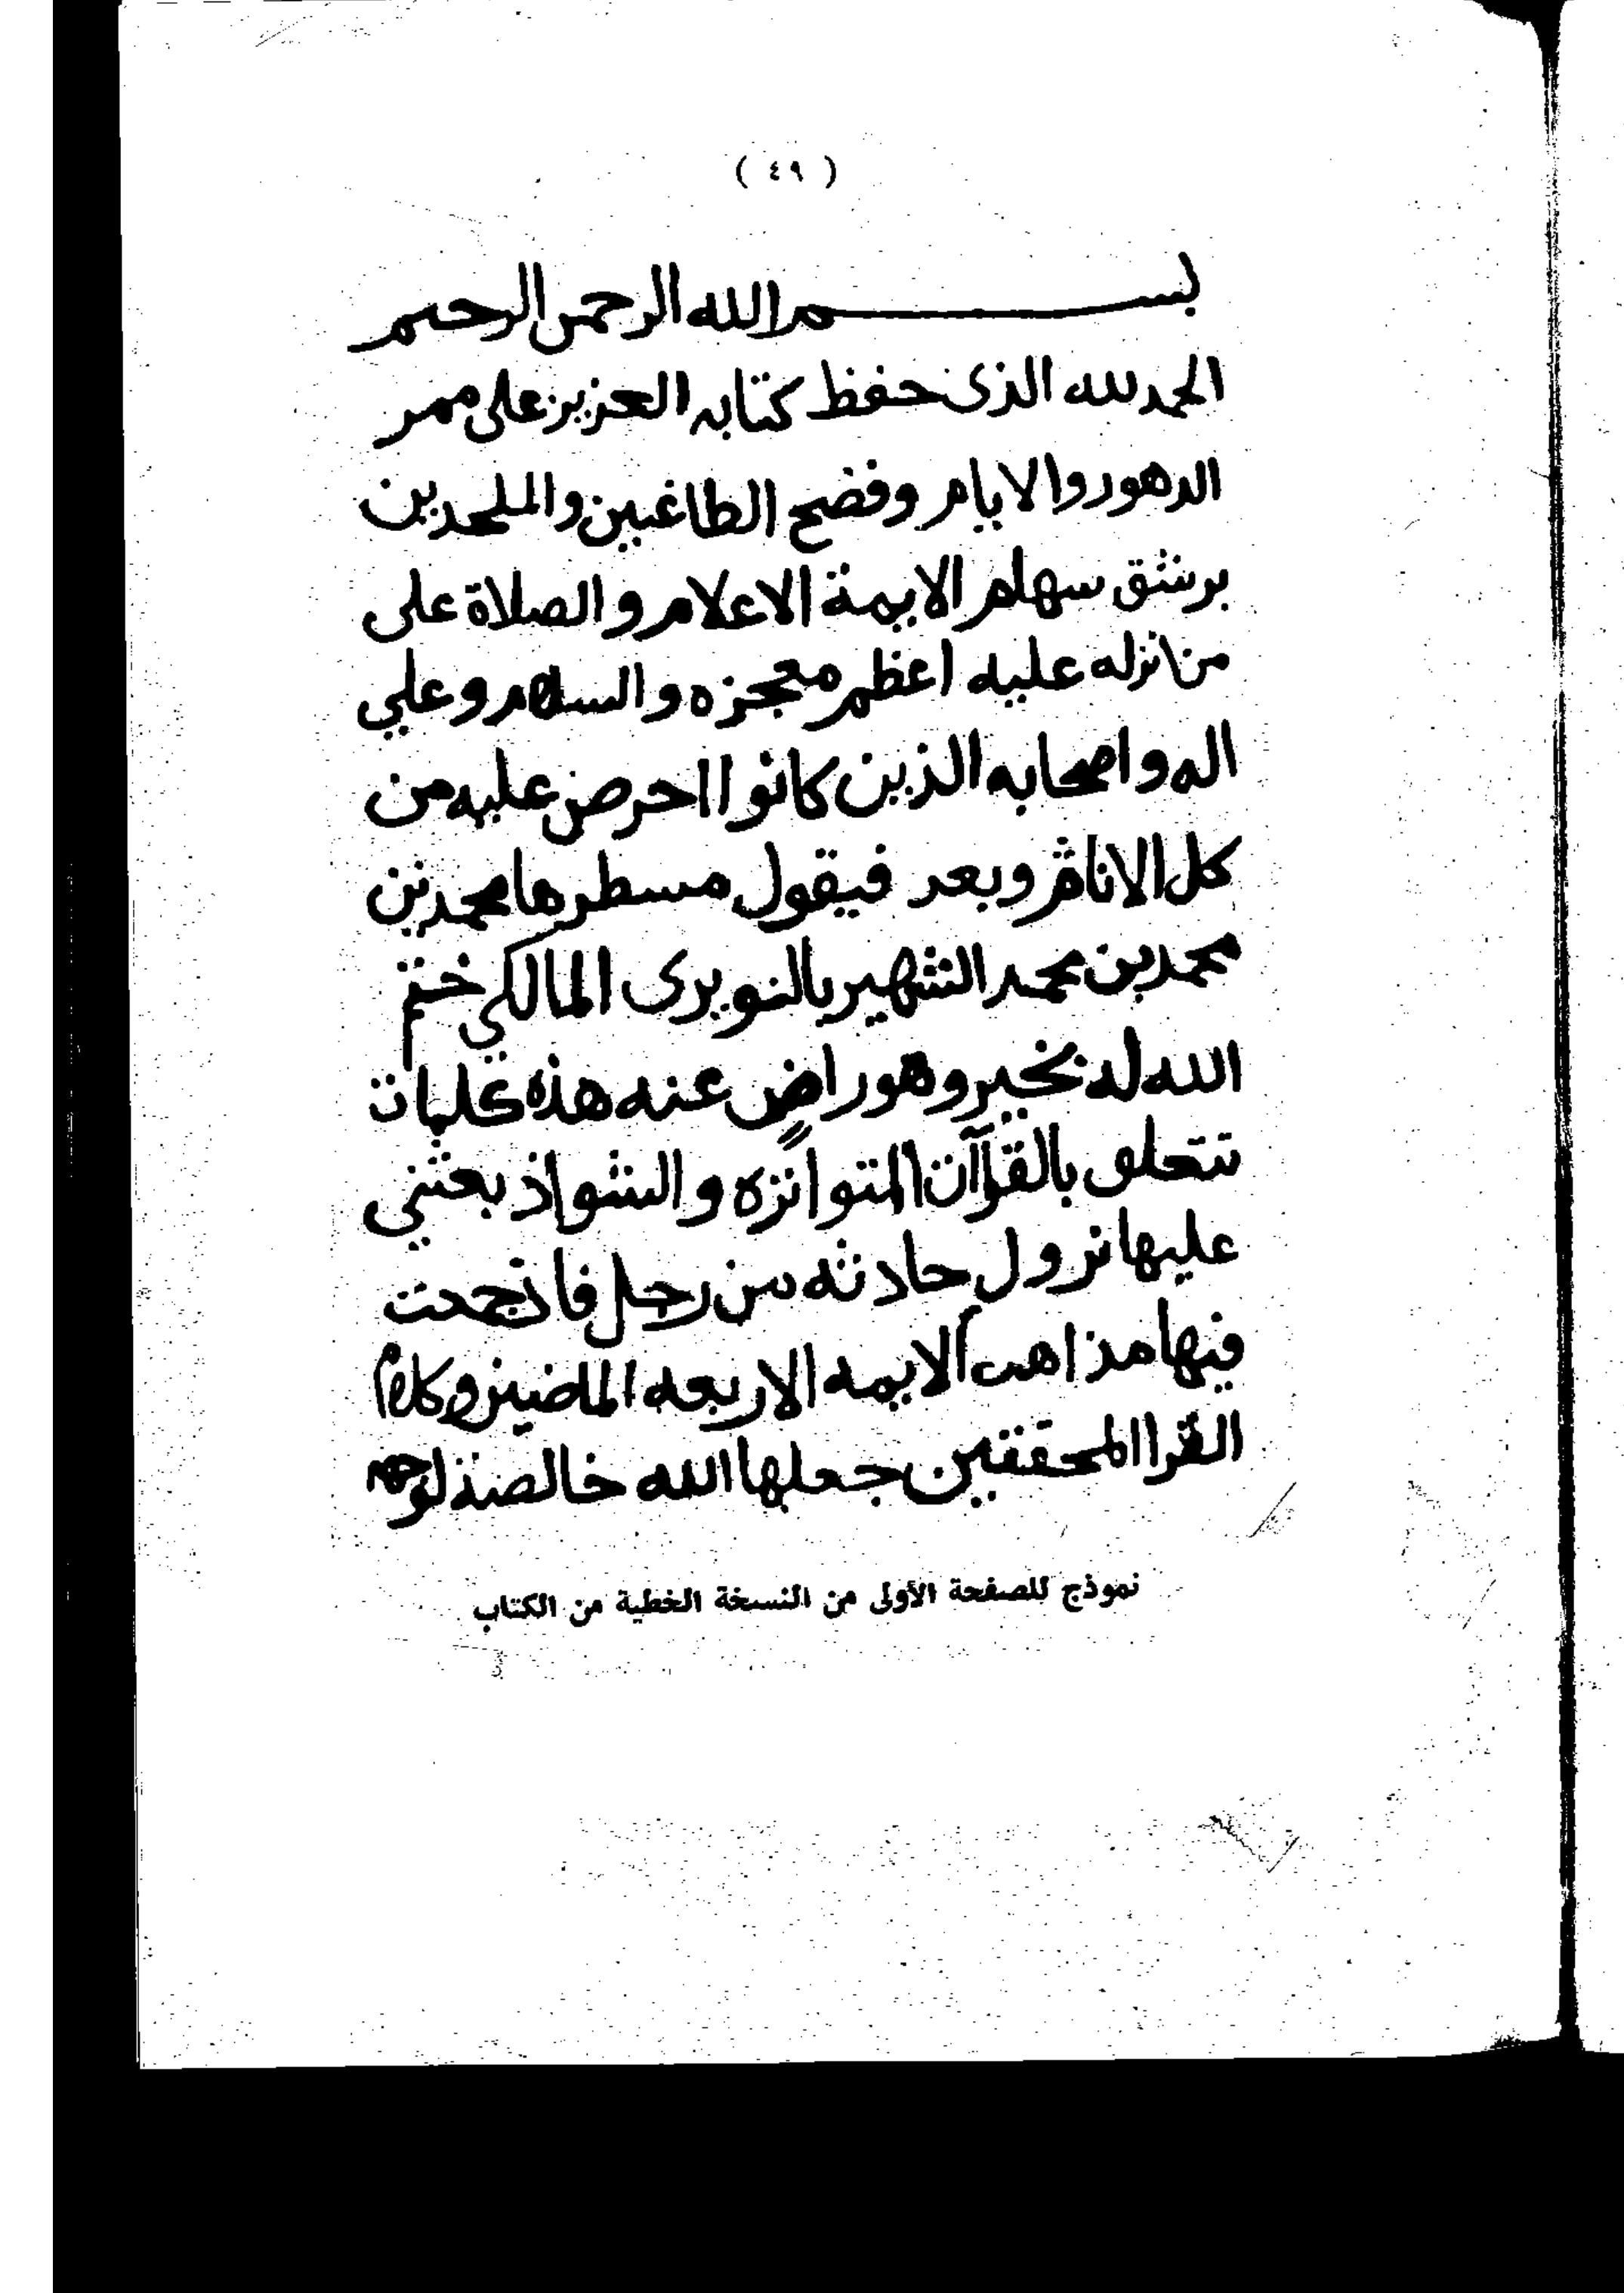 ( ٤٩ )
بســـــم الله الرحمن الرحيم
الحمد لله الذى حفظ كتابه العزيز على ممر
الدهور والايام وفضح الطاغين والملحدين
برشق سهام الايمة الاعلام والصلاة على
من انزله عليه اعظم معجزه والسلام وعلي
اله واصحابه الذين كانوا احرص عليه من
كل الانام وبعد فيقول مسطرها محمد بن
محمد بن محمد الشهير بالنويرى المالكي ختم
الله له بخير وهو راضٍ عنه هذه كلمات
تتعلق بالقرآن المتواتره والشواذ بعثني
عليها نزول حادثه من رجل فاذجمعت
فيها مذاهب الايمه الاربعه الماضين وكلام
القرا المحققين جعلها الله خالصة لوجهه
نموذج للصفحة الأولى من النسخة الخطية من الكتاب